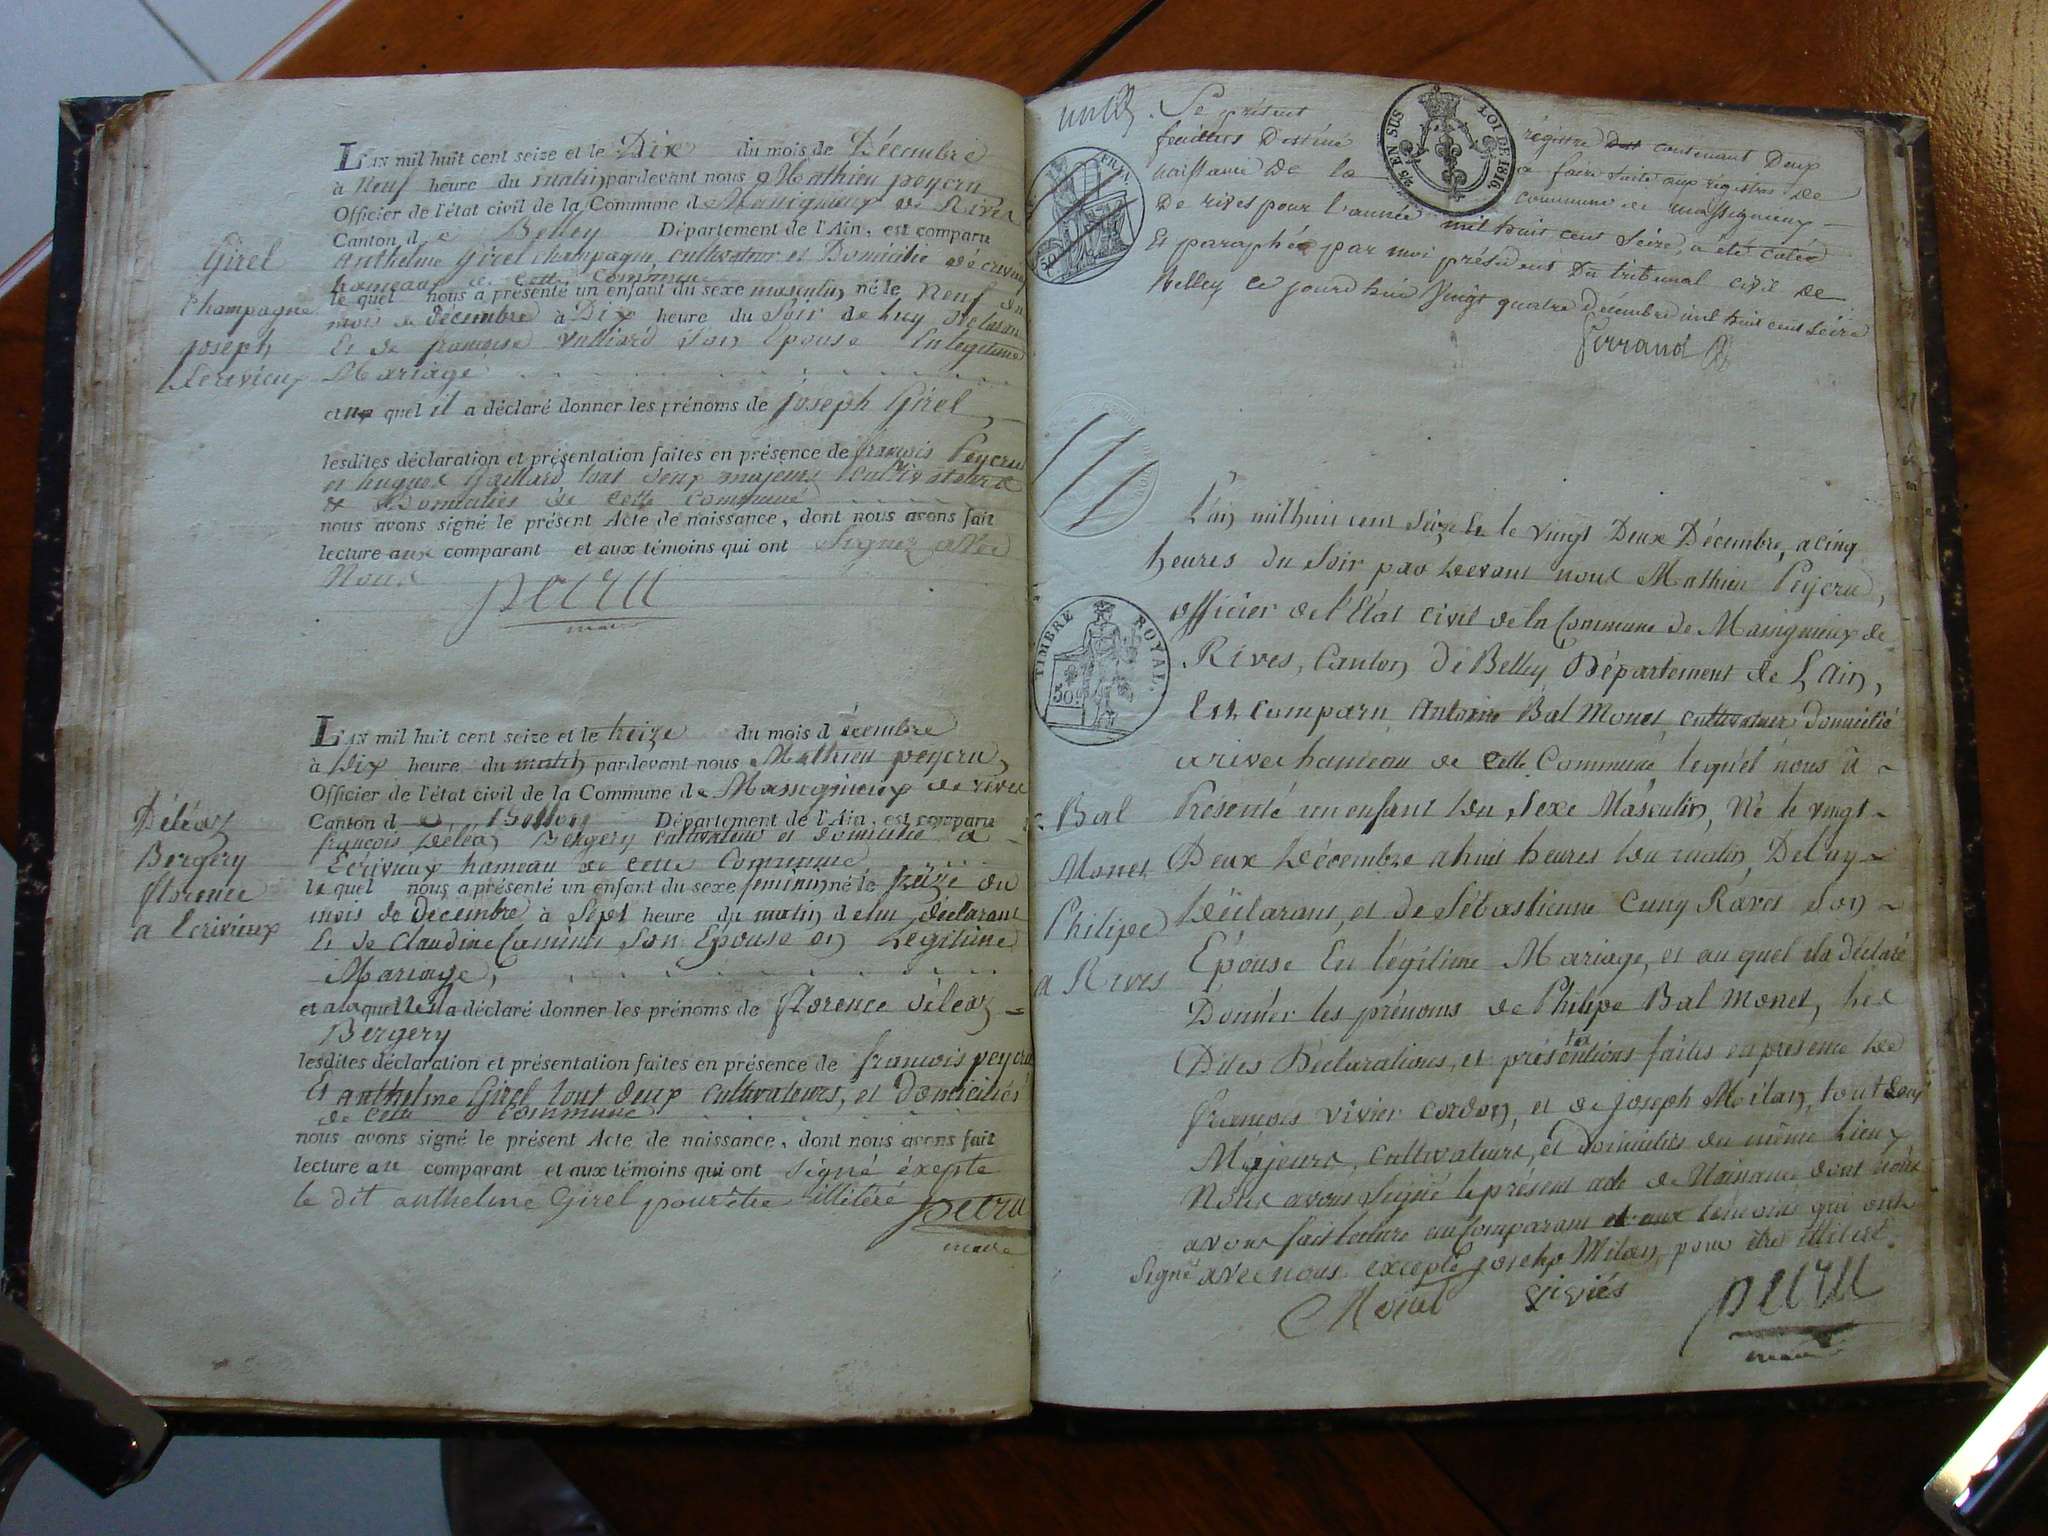 L'AN mil huit cent seize et le Dix du mois de Décembre
à Neuf heure du matin pardevant nous Mathieu peycru
Officier de l'état civil de la Commune de Massignieux de Rives
Canton de Belley Département de l'Ain, est comparu
Anthelme Girel champagne, cultivateur et Domicilié
hameau de cette commune
le quel nous a présenté un enfant du sexe masculin né le Neuf du
mois de décembre à Dix heure du Soir de luy déclarant
Et de françoise Vulliard son Epouse En legitime
Mariage
et au quel il a déclaré donner les prénoms de joseph Girel
lesdites déclaration et présentation faites en présence de françois Peycru
et hugues Gaillard tout deux majeurs cultivateurs
& Domiciliés de cette commune
nous avons signé le présent Acte de naissance, dont nous avons fait
lecture aux comparant et aux témoins qui ont Signez avec
Nous
peicru
maire
Girel
Champagne
joseph
Lecrivieux
L'AN mil huit cent seize et le treize du mois d écembre
à Dix heure du matin pardevant nous Mathieu peycru,
Officier de l'état civil de la Commune de Massignieux de rives
Canton d e Belley Département de l'Ain, est comparu
françois Déléaz Bergery cultivateur et domicilié a
Ecrivieux hameau de cette Commune
le quel nous a présenté un enfant du sexe feminin né le treize du
mois de décembre à Sept heure du matin de lui déclarant
Et de Claudine son Epouse en Legitime
Mariage,
et a laquelle il a déclaré donner les prénoms de florence déleaz =
Bergery
lesdites déclaration et présentation faites en présence de francois peycru
Et anthelme Girel tout deux cultivateurs, et domiciliés
de cette commune
nous avons signé le présent Acte de naissance, dont nous avons fait
lecture au comparant et aux témoins qui ont signé éxepte
le dit anthelme Girel pour être illitéré
peicru
maire
Déléaz
Bergery
florence
a Lecrivieux
Le présent registre contenant Deux
feuillets Destiné a faire suite aux régistres de
naissance de la commune de massignieux
De rives pour l'année mil huit cent seize, a été coté
Et paraphé par moi président Du tribunal civil de
Belley ce jourd'hui vingt quatre décembre mil huit cent seize
Ferrand
2/5 EN SUS LOI DE 1816.
FRN.
50
TIMBRE ROYAL.
50c
L'an mil huit cent seize & le vingt Deux Décembre, a cinq
heures du Soir par devant nous Mathieu Peycru,
officier de l'État civil de la Commune de Massignieux de
Rives, Canton de Belley Département de L'Ain,
Est comparu Antoine Bal Monet, cultivateur domicilié
a rives hameau de cette Commune, lequel nous a -
Présenté un enfant du Sexe Masculin, Né le vingt -
Deux Décembre a huit heures du matin, De luy -
Déclarant, et de Sébastienne Cuny Ravet son -
Épouse En légitime Mariage, et au quel il a déclaré
Donner les prénoms de Philipe Bal Monet, les
Dites Déclarations, et présentations faites en presence de
françois vivier cordon, et de joseph Milan, tout deux
Majeurs, cultivateurs, et domiciliés du même Lieux
Nous avons Signé le présent acte de Naissance dont nous
avons fait lecture au Comparant et aux témoins qui ont
Signé avec nous excepté josehp Milan, pour être illiteré.
Monet viviés peicru
maire
Bal
Monet
Philipe
a Rives